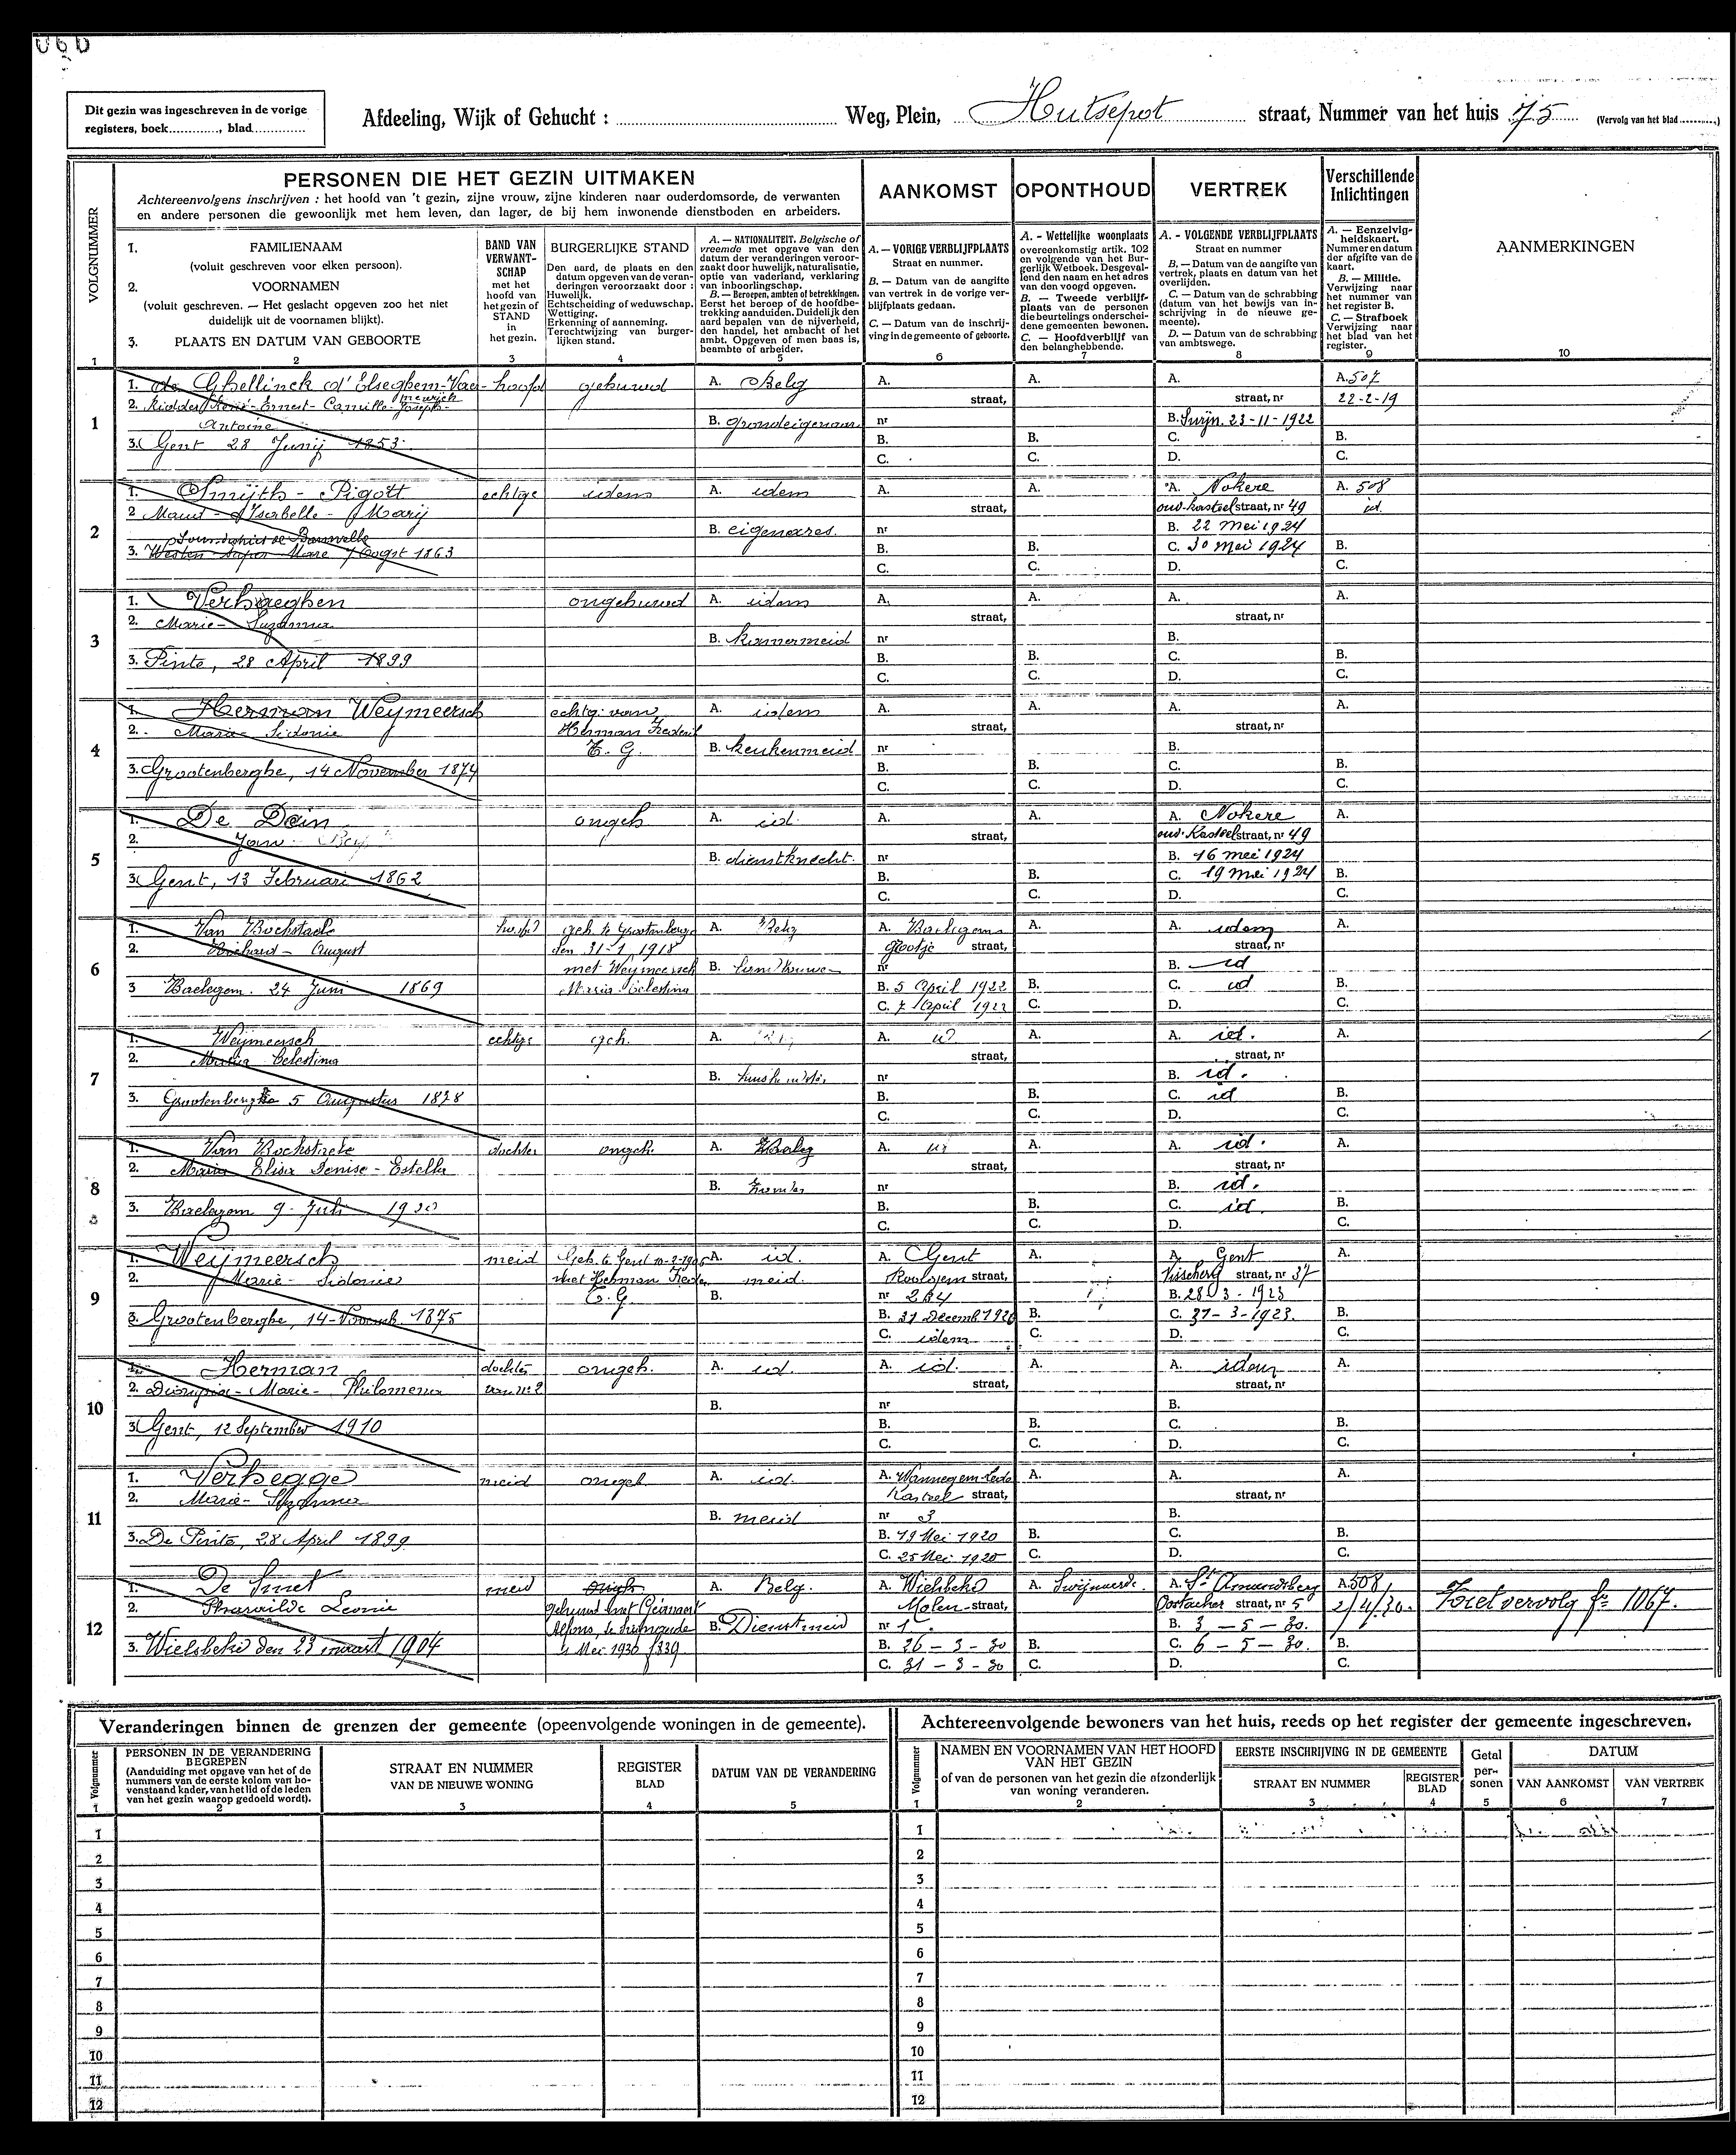 Dit gezin was ingeschreven in de vorige
registers, boek............., blad.............
Afdeeling, Wijk of Gehucht : Weg, Plein, Hutsepot straat, Nummer van het huis 75 (Vervolg van het blad ..........)
VOLGNUMMER
PERSONEN DIE HET GEZIN UITMAKEN
Achtereenvolgens inschrijven : het hoofd van 't gezin, zijne vrouw, zijne kinderen naar ouderdomsorde, de verwanten
en andere personen die gewoonlijk met hem leven, dan lager, de bij hem inwonende dienstboden en arbeiders.
AANKOMST
OPONTHOUD
VERTREK
Verschillende
Inlichtingen
1. FAMILIENAAM
(voluit geschreven voor elken persoon).
2. VOORNAMEN
(voluit geschreven. — Het geslacht opgeven zoo het niet
duidelijk uit de voornamen blijkt).
3. PLAATS EN DATUM VAN GEBOORTE
BAND VAN
VERWANT-
SCHAP
met het
hoofd van
het gezin of
STAND
in
het gezin.
BURGERLIJKE STAND
Den aard, de plaats en den
datum opgeven van de veran-
deringen veroorzaakt door :
Huwelijk.
Echtscheiding of weduwschap.
Wettiging.
Erkenning of aanneming.
Terechtwijzing van burger-
lijken stand.
A. — NATIONALITEIT. Belgische of
vreemde met opgave van den
datum der veranderingen veroor-
zaakt door huwelijk, naturalisatie,
optie van vaderland, verklaring
van inboorlingschap.
B. — Beroepen, ambten of betrekkingen.
Eerst het beroep of de hoofdbe-
trekking aanduiden. Duidelijk den
aard bepalen van de nijverheid,
den handel, het ambacht of het
ambt. Opgeven of men baas is,
beambte of arbeider.
A. — VORIGE VERBLIJFPLAATS
Straat en nummer.
B. — Datum van de aangifte
van vertrek in de vorige ver-
blijfplaats gedaan.
C. — Datum van de inschrij-
ving in de gemeente of geboorte.
A. - Wettelijke woonplaats
overeenkomstig artik. 102
en volgende van het Bur-
gerlijk Wetboek. Desgeval-
lend den naam en het adres
van den voogd opgeven.
B. — Tweede verblijf-
plaats van de personen
die beurtelings onderschei-
dene gemeenten bewonen.
C. — Hoofdverblijf van
den belanghebbende.
A. - VOLGENDE VERBLIJFPLAATS
Straat en nummer
B. — Datum van de aangifte van
vertrek, plaats en datum van het
overlijden.
C. — Datum van de schrabbing
(datum van het bewijs van in-
schrijving in de nieuwe ge-
meente).
D. — Datum van de schrabbing
van ambtswege.
A. — Eenzelvig-
heidskaart.
Nummer en datum
der afgifte van de
kaart.
B. — Militie.
Verwijzing naar
het nummer van
het register B.
C. — Strafboek
Verwijzing naar
het blad van het
register.
AANMERKINGEN
1 2 3 4 5 6 7 8 9 10
1 1. de Ghellinck d'Elseghem-Vaer- hoofd gehuwd A. Belg A. A. A. A. 507
newijck straat, straat, nr 22-2-19
2. Ridder René-Ernest-Camille-Joseph-
Antoine B. grondeigenaar nr B. Swijn. 23-11-1922
3. Gent 28 Junij 1853 B. B. C. B.
C. C. D. C.
2 1. Smijth - Pigott echtge idem A. idem A. A. A. Nokere A. 508
2 Maud - Isabelle - Marij straat, oud-kasteel straat, nr 49 id.
B. eigenares. nr B. 22 Mei 1924
3. Weston Super Mare 7 Oogst 1863 B. B. C. 30 mei 1924 B.
C. C. D. C.
3 1. Verhaeghen ongehuwd A. idem A. A. A. A.
2. Marie-Suzanna straat, straat, nr
B. kamermeid nr B.
3. Pinte, 28 April 1899 B. B. C. B.
C. C. D. C.
4 1. Herman Weymeersch echtg. van A. idem A. A. A. A.
2. Marie Sidonie Herman Frederik straat, straat, nr
B. keukenmeid nr B.
3. Grootenberghe, 14 November 1874 B. B. C. B.
C. C. D. C.
5 1. De Dain ongeh A. id. A. A. A. Nokere A.
2. Jan straat, oud-Kasteel straat, nr 49
B. dienstknecht. nr B. 16 mei 1924
3. Gent, 13 Februari 1862 B. B. C. 19 mei 1924 B.
C. C. D. C.
6 1. Van Bockstaele geh. te Grootenberge A. Belg A. Baelegem A. A. idem A.
2. Richard - August den 31-1 1918 straat, straat, nr
met Weymeersch B. nr B. id
3 Baelegem. 24 Juni 1869 Maria Celestina B. 5 April 1922 B. C. id B.
C. 7 April 1922 C. D. C.
7 1. Weymeersch echtge geh. A. A. A. A. id. A.
2. Maria Celestina straat, straat, nr
B. nr B. id.
3. Grootenberghe 5 Augustus 1878 B. B. C. id B.
C. C. D. C.
8 1. Van Bockstaele dochter ongeh. A. Belg A. A. A. id. A.
2. Maria Elisa Denise - Estella straat, straat, nr
B. nr B. id.
3. Baelegem 9 Juli 1920 B. B. C. id. B.
C. C. D. C.
9 1. Weymeersch meid Geh. te Gent 10-3-1906 A. id. A. Gent A. A. Gent A.
2. Marie - Sidonie met Herman Freder. meid. straat, Visscherij straat, nr 37
B. nr 234 B. 28-3-1923
3. Grootenberghe, 14-Novemb. 1875 B. 31 Decemb 1920 B. C. 31-3-1923. B.
C. idem C. D. C.
10 1. Herman dochter ongeh. A. id. A. id. A. A. idem A.
2. Marie - Philomena straat, straat, nr
B. nr B.
3. Gent, 12 September 1910 B. B. C. B.
C. C. D. C.
11 1. Verhegge meid ongeh A. id. A. Wannegem Lede A. A. A.
2. Marie - Suzanna Kasteel straat, straat, nr
B. meid nr 3 B.
3. De Pinte, 28 April 1899 B. 19 Mei 1920 B. C. B.
C. 25 Mei 1920 C. D. C.
12 1. De Smet meid ongeh A. Belg. A. Wielsbeke A. Swijnaerde. A. St Amandsberg A. 508
2. Leonie gehuwd met Molen straat, Oostacker straat, nr 5 2/4/30. Ziet vervolg fo 1067.
Alfons, B. Dienstmeid nr 1 B. 3 - 5 - 30.
3. Wielsbeke den 23 maart 1904 4 Mei 1930 f339 B. 26 - 3 - 30 B. C. 6 - 5 - 30. B.
C. 31 - 3 - 30 C. D. C.
Veranderingen binnen de grenzen der gemeente (opeenvolgende woningen in de gemeente).
Volgnummer
PERSONEN IN DE VERANDERING
BEGREPEN
(Aanduiding met opgave van het of de
nummers van de eerste kolom van bo-
venstaand kader, van het lid of de leden
van het gezin waarop gedoeld wordt).
STRAAT EN NUMMER
VAN DE NIEUWE WONING
REGISTER
BLAD
DATUM VAN DE VERANDERING
1 2 3 4 5
1
2
3
4
5
6
7
8
9
10
11
12
Achtereenvolgende bewoners van het huis, reeds op het register der gemeente ingeschreven.
Volgnummer
NAMEN EN VOORNAMEN VAN HET HOOFD
VAN HET GEZIN
of van de personen van het gezin die afzonderlijk
van woning veranderen.
EERSTE INSCHRIJVING IN DE GEMEENTE
STRAAT EN NUMMER
REGISTER
BLAD
Getal
per-
sonen
DATUM
VAN AANKOMST VAN VERTREK
1 2 3 4 5 6 7
1
2
3
4
5
6
7
8
9
10
11
12